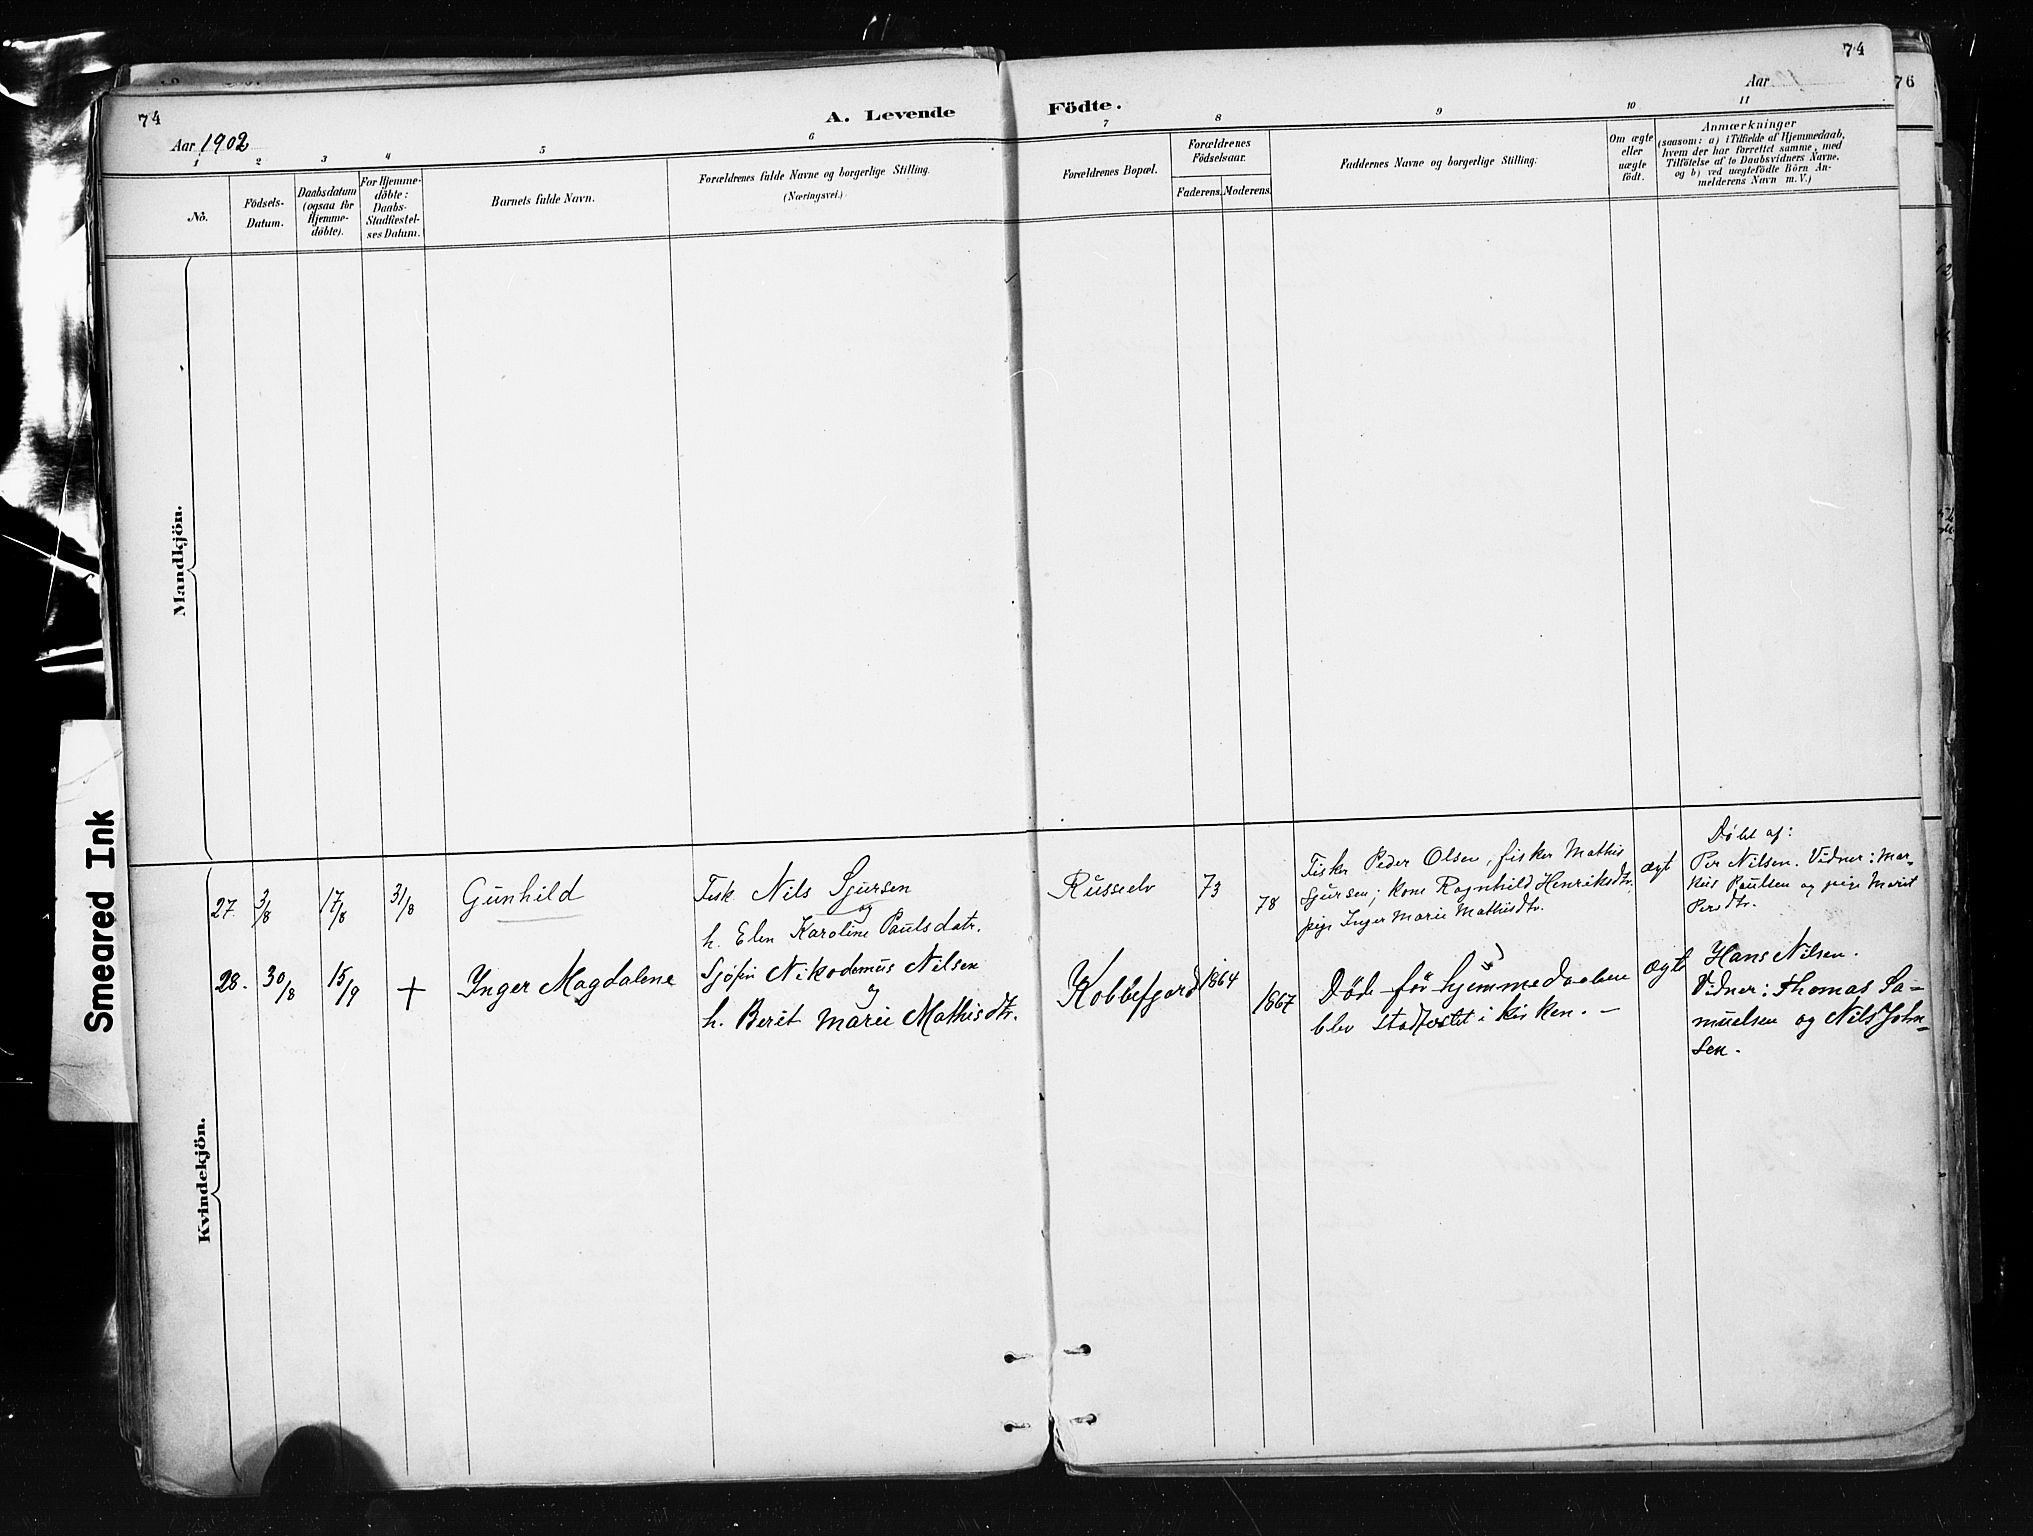 74
A. Levende Födte.
74
Aar 1902
Aar
76
1 2 3 4 5 6 7 8 9 10 11
No.
Födsels-
Datum.
Daabsdatum
(ogsaa for
Hjemme-
döbte).
For Hjemme-
döbte:
Daabs-
Stadfæstel-
ses Datum.
Barnets fulde Navn.
Forældrenes fulde Navne og borgerlige Stilling.
(Næringsvei.)
Forældrenes Bopæl.
Forældrenes
Födselsaar.
Faderens. Moderens.
Faddernes Navne og borgerlige Stilling.
Om ægte
eller
uægte
födt.
Anmærkninger
(saasom: a) i Tilfælde af Hjemmedaab,
hvem der har forrettet samme, med
Tilföielse af to Daabsvidners Navne,
og b) ved uægtefödte Börn An-
melderens Navn m. V.)
Mandkjön.
Smeared Ink
Kvindekjön.
27. 3/8 17/8 31/8 Gunhild
Fisk. Nils Sjursen
og
h. Elen Karoline Paulsdatr.
Russeelv 73 78
Fisker Peder Olsen, fisker Mathis
Sjursen; kone Ragnhild Henriksdtr.
pige Inger Marie Mathisdtr.
ægt
Døbt af:
Per Nilsen. Vidner: Mar-
kus Paulsen og pige Marit
Persdtr.
28. 30/8 15/9 + Inger Magdalene
Sjøfin Nikodemus Nilsen
og
h. Berit Marie Mathisdtr.
Kobbefjord 1864 1867
Død før hjemmedaaben
blev stadfæstet i kirken. –
ægte
Hans Nilsen.
Vidner: Thomas Sa-
muelsen og Nils John-
sen.